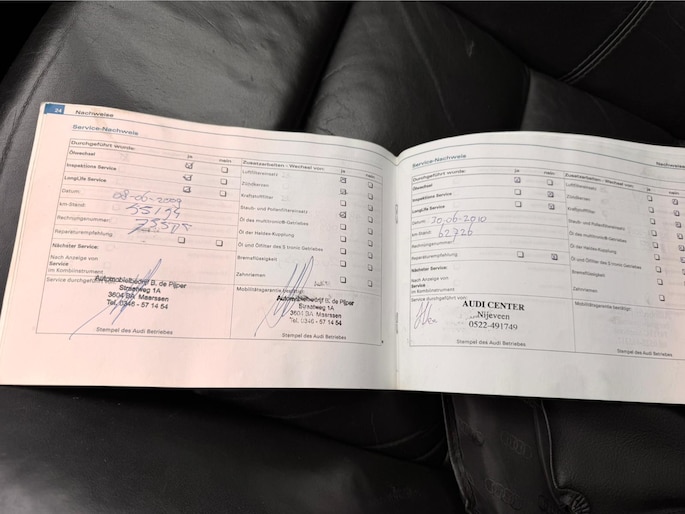 24 Nachweise
Service-Nachweis
Durchgeführt wurde: ja nein
Ölwechsel
Inspektions Service
LongLife Service
Datum: 08-06-2009
km-Stand:
Rechnungsnummer:
Reparaturempfehlung
Nächster Service:
Nach Anzeige von
Service
im Kombinstrument
Service durchgeführt
Automobielbedrijf B. de Pijper
Straatweg 1A
3604 BA Maarssen
Tel. 0346 - 57 14 54
Stempel des Audi Betriebes
Zusatzarbeiten - Wechsel von: ja nein
Luftfiltereinsatz
Zündkerzen
Kraftstofffilter
Staub- und Pollenfiltereinsatz
Öl des multitronic®-Getriebes
Öl der Haldex-Kupplung
Öl und Ölfilter des S tronic Getriebes
Bremsflüssigkeit
Zahnriemen
Mobilitätsgarantie bestätigt:
Automobielbedrijf B. de Pijper
Straatweg 1A
3604 BA Maarssen
Tel. 0346 - 57 14 54
Stempel des Audi Betriebes
Nachweise
Service-Nachweis
Durchgeführt wurde: ja nein
Ölwechsel
Inspektions Service
LongLife Service
Datum: 30.06-2010
km-Stand: 62726
Rechnungsnummer:
Reparaturempfehlung
Nächster Service:
Nach Anzeige von
Service
im Kombinstrument
Service durchgeführt von:
AUDI CENTER
Nijeveen
0522-491749
Stempel des Audi Betriebes
Zusatzarbeiten - Wechsel von: ja
Luftfiltereinsatz
Zündkerzen
Kraftstofffilter
Staub- und Pollenfiltereinsatz
Öl des multitronic®-Getriebes
Öl der Haldex-Kupplung
Öl und Ölfilter des S tronic Getriebes
Bremsflüssigkeit
Zahnriemen
Mobilitätsgarantie bestätigt:
Stempel des Audi Betriebes